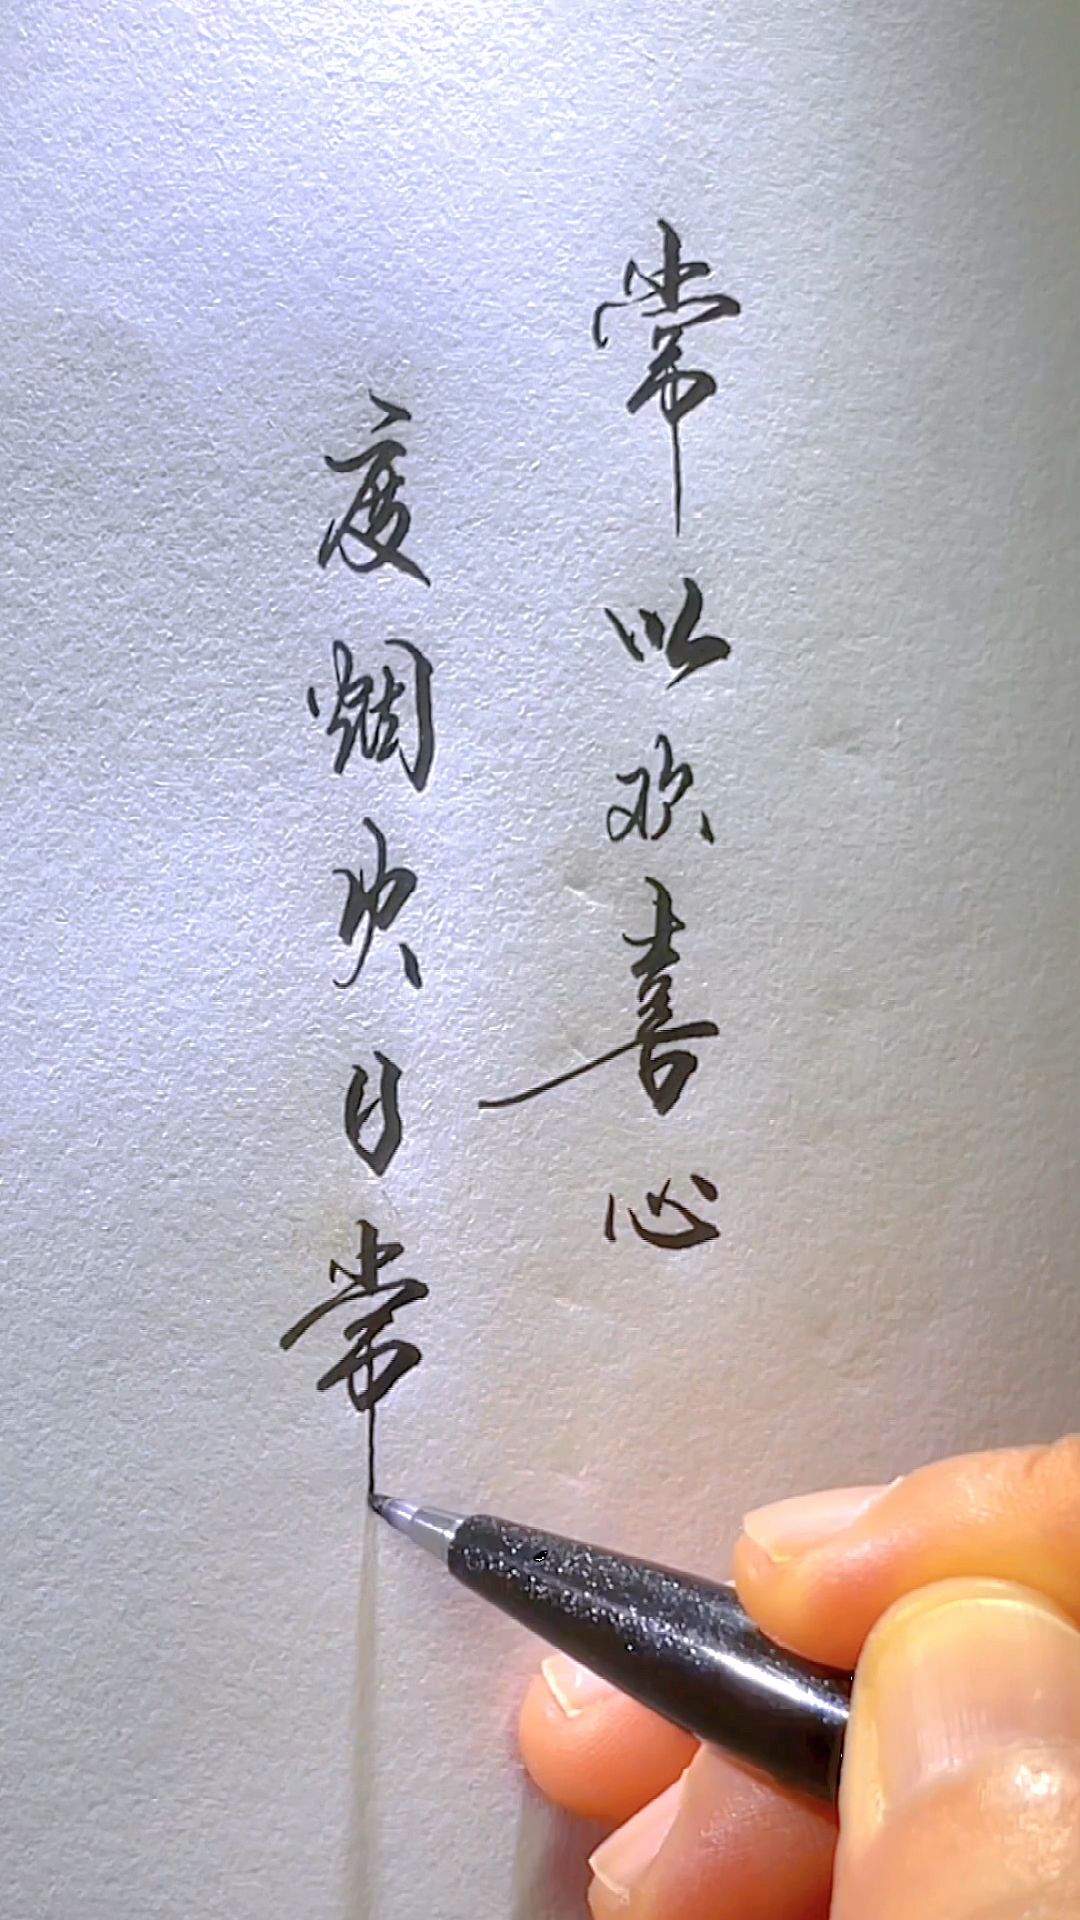 常以欢喜心
度烟火日常